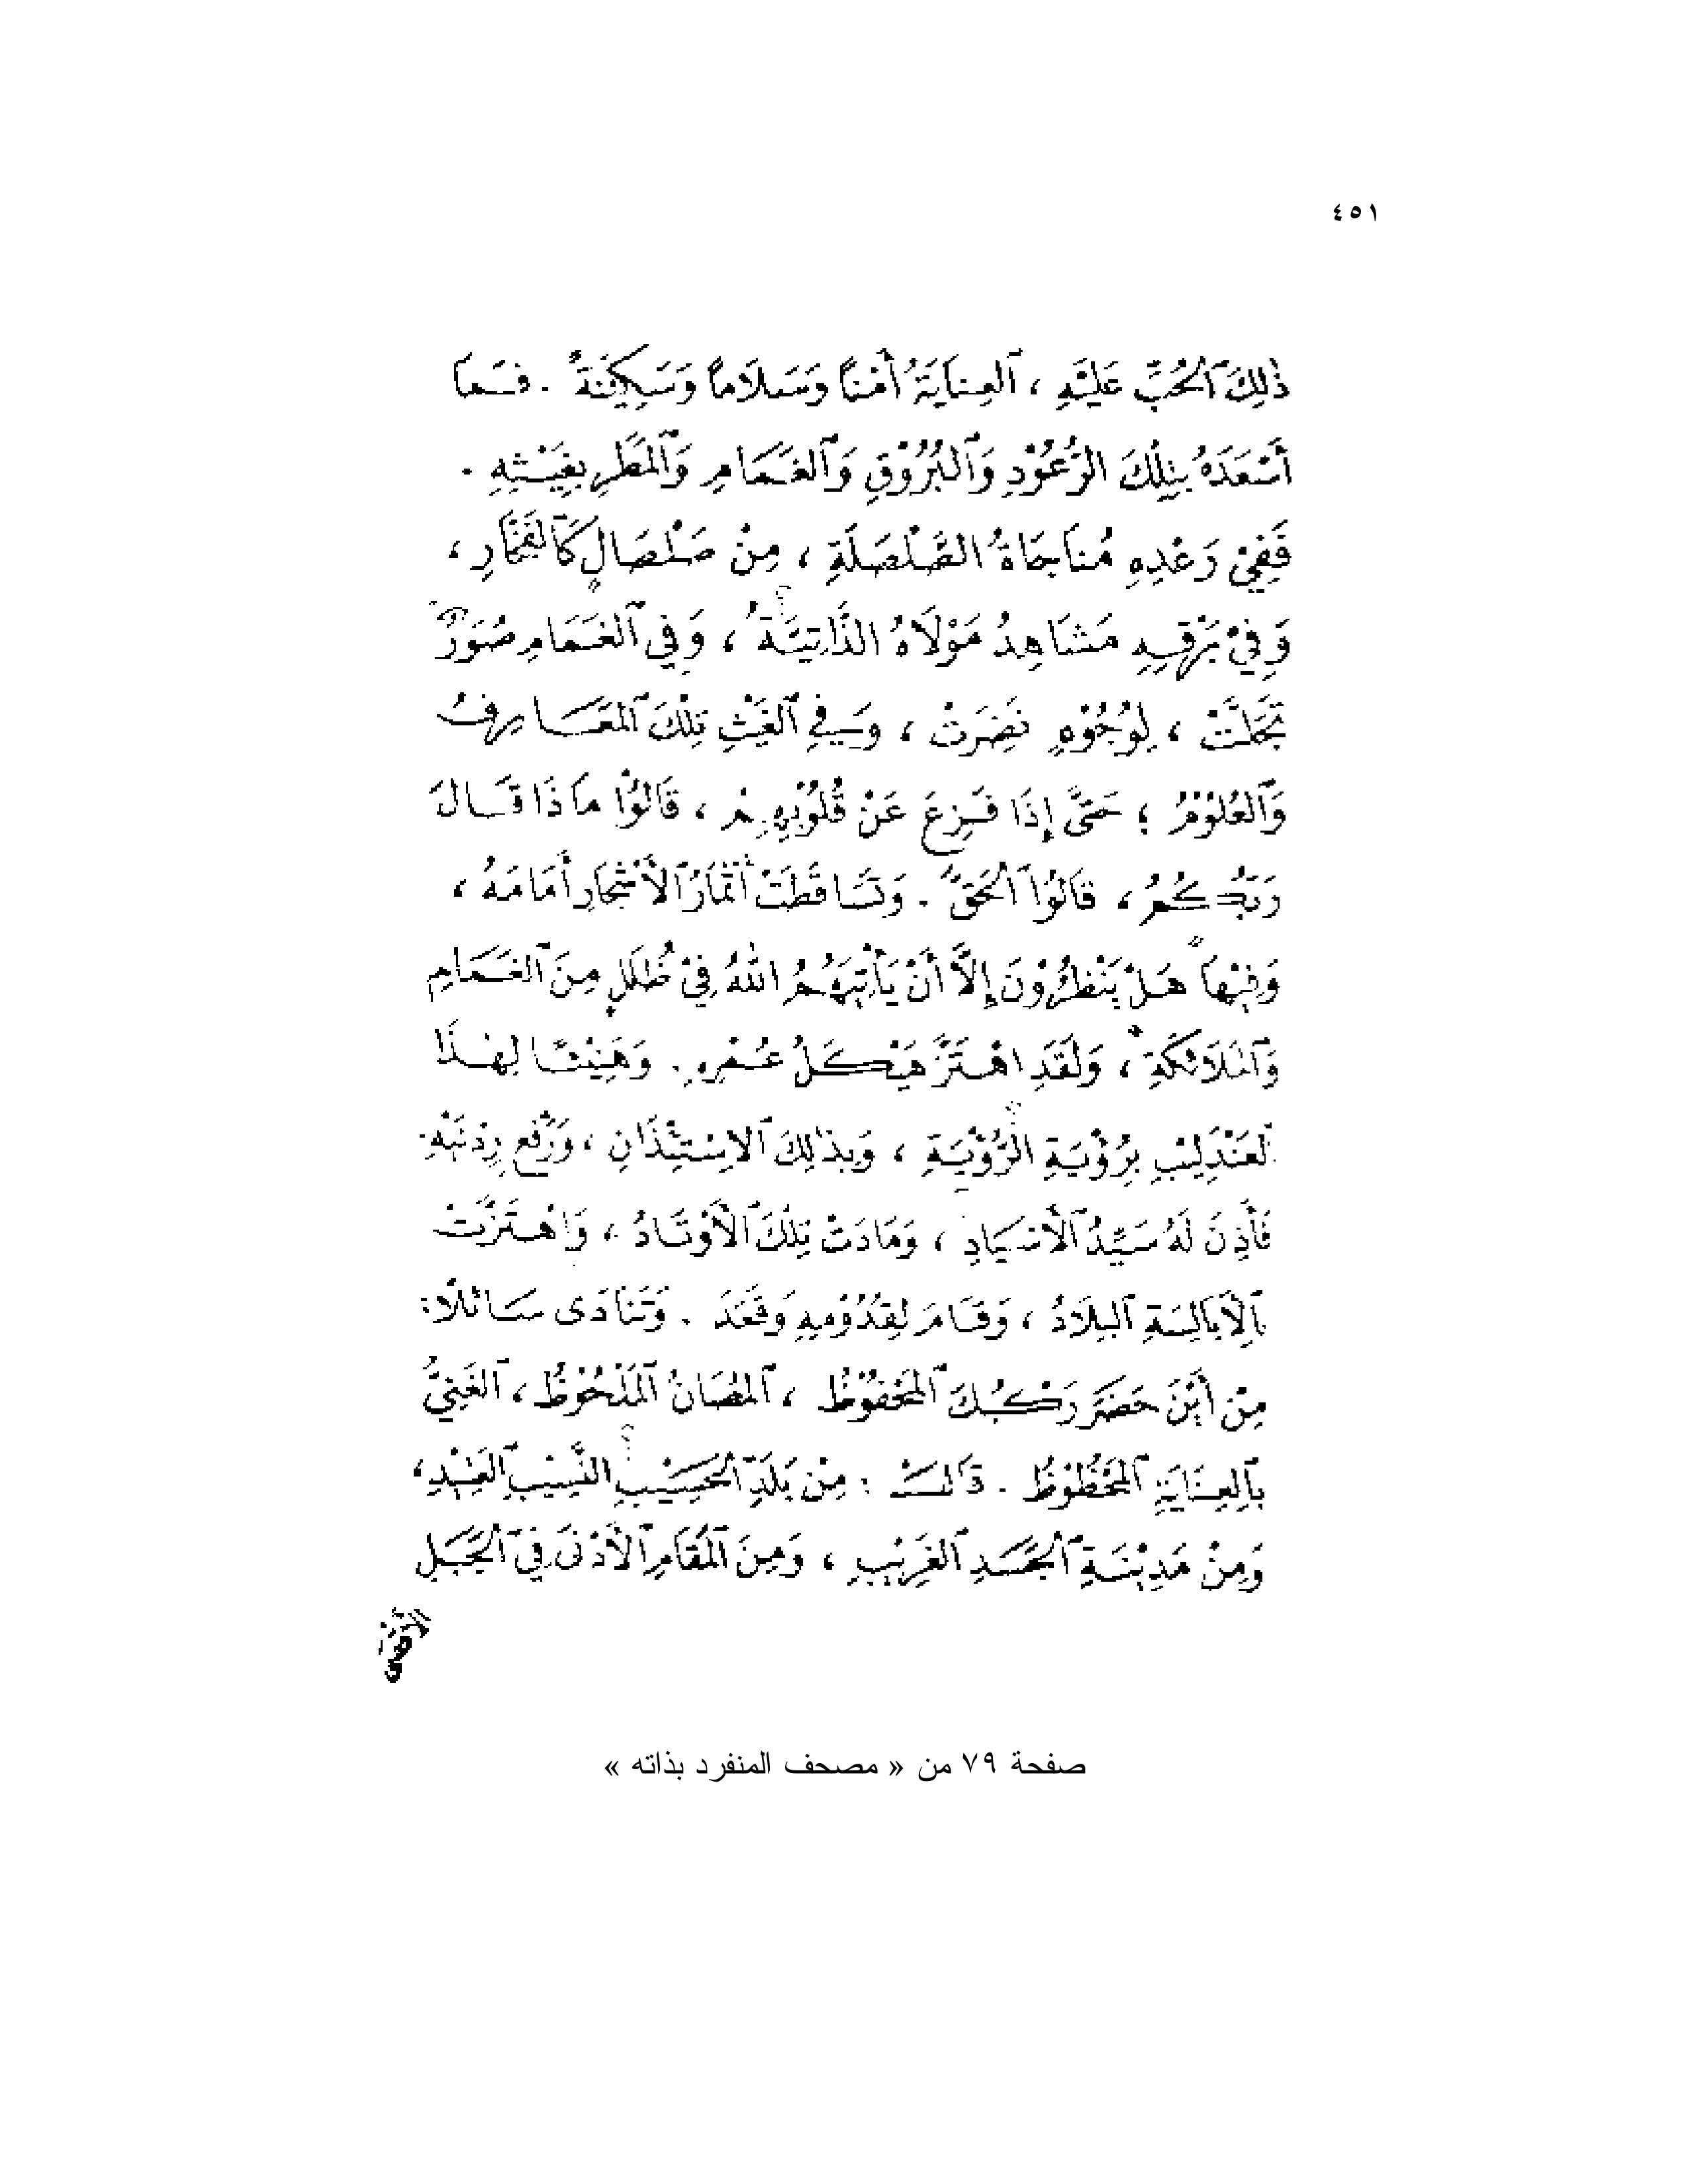 ٤٥١
ذٰلِكَ ٱلْحُبِّ عَلَيْهِ ، ٱلْعِنَايَةُ أَمْنًا وَسَلَامًا وَسَكِيْنَةً . فَمَا
أَسْعَدَهُ بِتِلْكَ الرُّعُوْدِ وَٱلْبُرُوْقِ وَٱلْغَمَامِ وَٱلْمَطَرِ بِغَيْثِهِ .
فَفِيْ رَعْدِهِ مُنَاجَاةُ الصَّلْصَلَةِ ، مِنْ صَلْصَالٍ كَٱلْفَخَّارِ ،
وَفِيْ بَرْقِهِ مَشَاهِدُ مَوْلَاهُ الذَّاتِيَّةُ ، وَفِي ٱلْغَمَامِ صُوَرٌ
تَجَلَّتْ ، لِوُجُوْهٍ نَضِرَتْ ، وَفِي ٱلْغَيْثِ تِلْكَ ٱلْمَعَارِفُ
وَٱلْعُلُوْمُ ؛ حَتَّى إِذَا فُزِعَ عَنْ قُلُوْبِهِمْ ، قَالُوْا مَاذَا قَالَ
رَبُّكُمُ ، قَالُوْا ٱلْحَقَّ . وَتَسَاقَطَتْ أَثْمَارُ ٱلْأَشْجَارِ أَمَامَهُ ،
وَفِيْهَا هَلْ يَنْظُرُوْنَ إِلَّا أَنْ يَأْتِيَهُمُ اللّٰهُ فِيْ ظُلَلٍ مِنَ ٱلْغَمَامِ
وَٱلْمَلَائِكَةِ ، وَلَقَدِ اهْتَزَّ هَيْكَلُ عُمْرِهِ . وَهَنِيْئًا لِهٰذَا
ٱلْعَنْدَلِيْبِ بِرُؤْيَةِ الرُّؤْيَةِ ، وَبِذٰلِكَ ٱلِاسْتِئْذَانِ ، وَرَفْعِ رِدْنَيْهِ
فَأَذِنَ لَهُ سَيِّدُ ٱلْأَسْيَادِ ، وَمَادَتْ تِلْكَ ٱلْأَوْتَادُ ، وَاهْتَزَّتْ
بِٱلْأَبَالِسَةِ ٱلْبِلَادُ ، وَقَامَ لِقُدُوْمِهِ وَقَعَدَ . وَتَنَادَى سَائِلًا :
مِنْ أَيْنَ حَضَرَ رَكْبُكَ ٱلْمَحْفُوْظُ ، ٱلْمُصَانُ ٱلْمَلْحُوْظُ ، ٱلْغَنِيُّ
بِٱلْعِنَايَةِ ٱلْمَحْظُوْظُ . قَالَ : مِنْ بَلَدِ ٱلْحَسِيْبِ النَّسِيْبِ
وَمِنْ مَدِيْنَةِ ٱلْجَسَدِ ٱلْغَرِيْبِ ، وَمِنَ ٱلْمَقَامِ ٱلْأَدْنَى فِي ٱلْجَبَلِ
صفحة ٧٩ من « مصحف المنفرد بذاته »